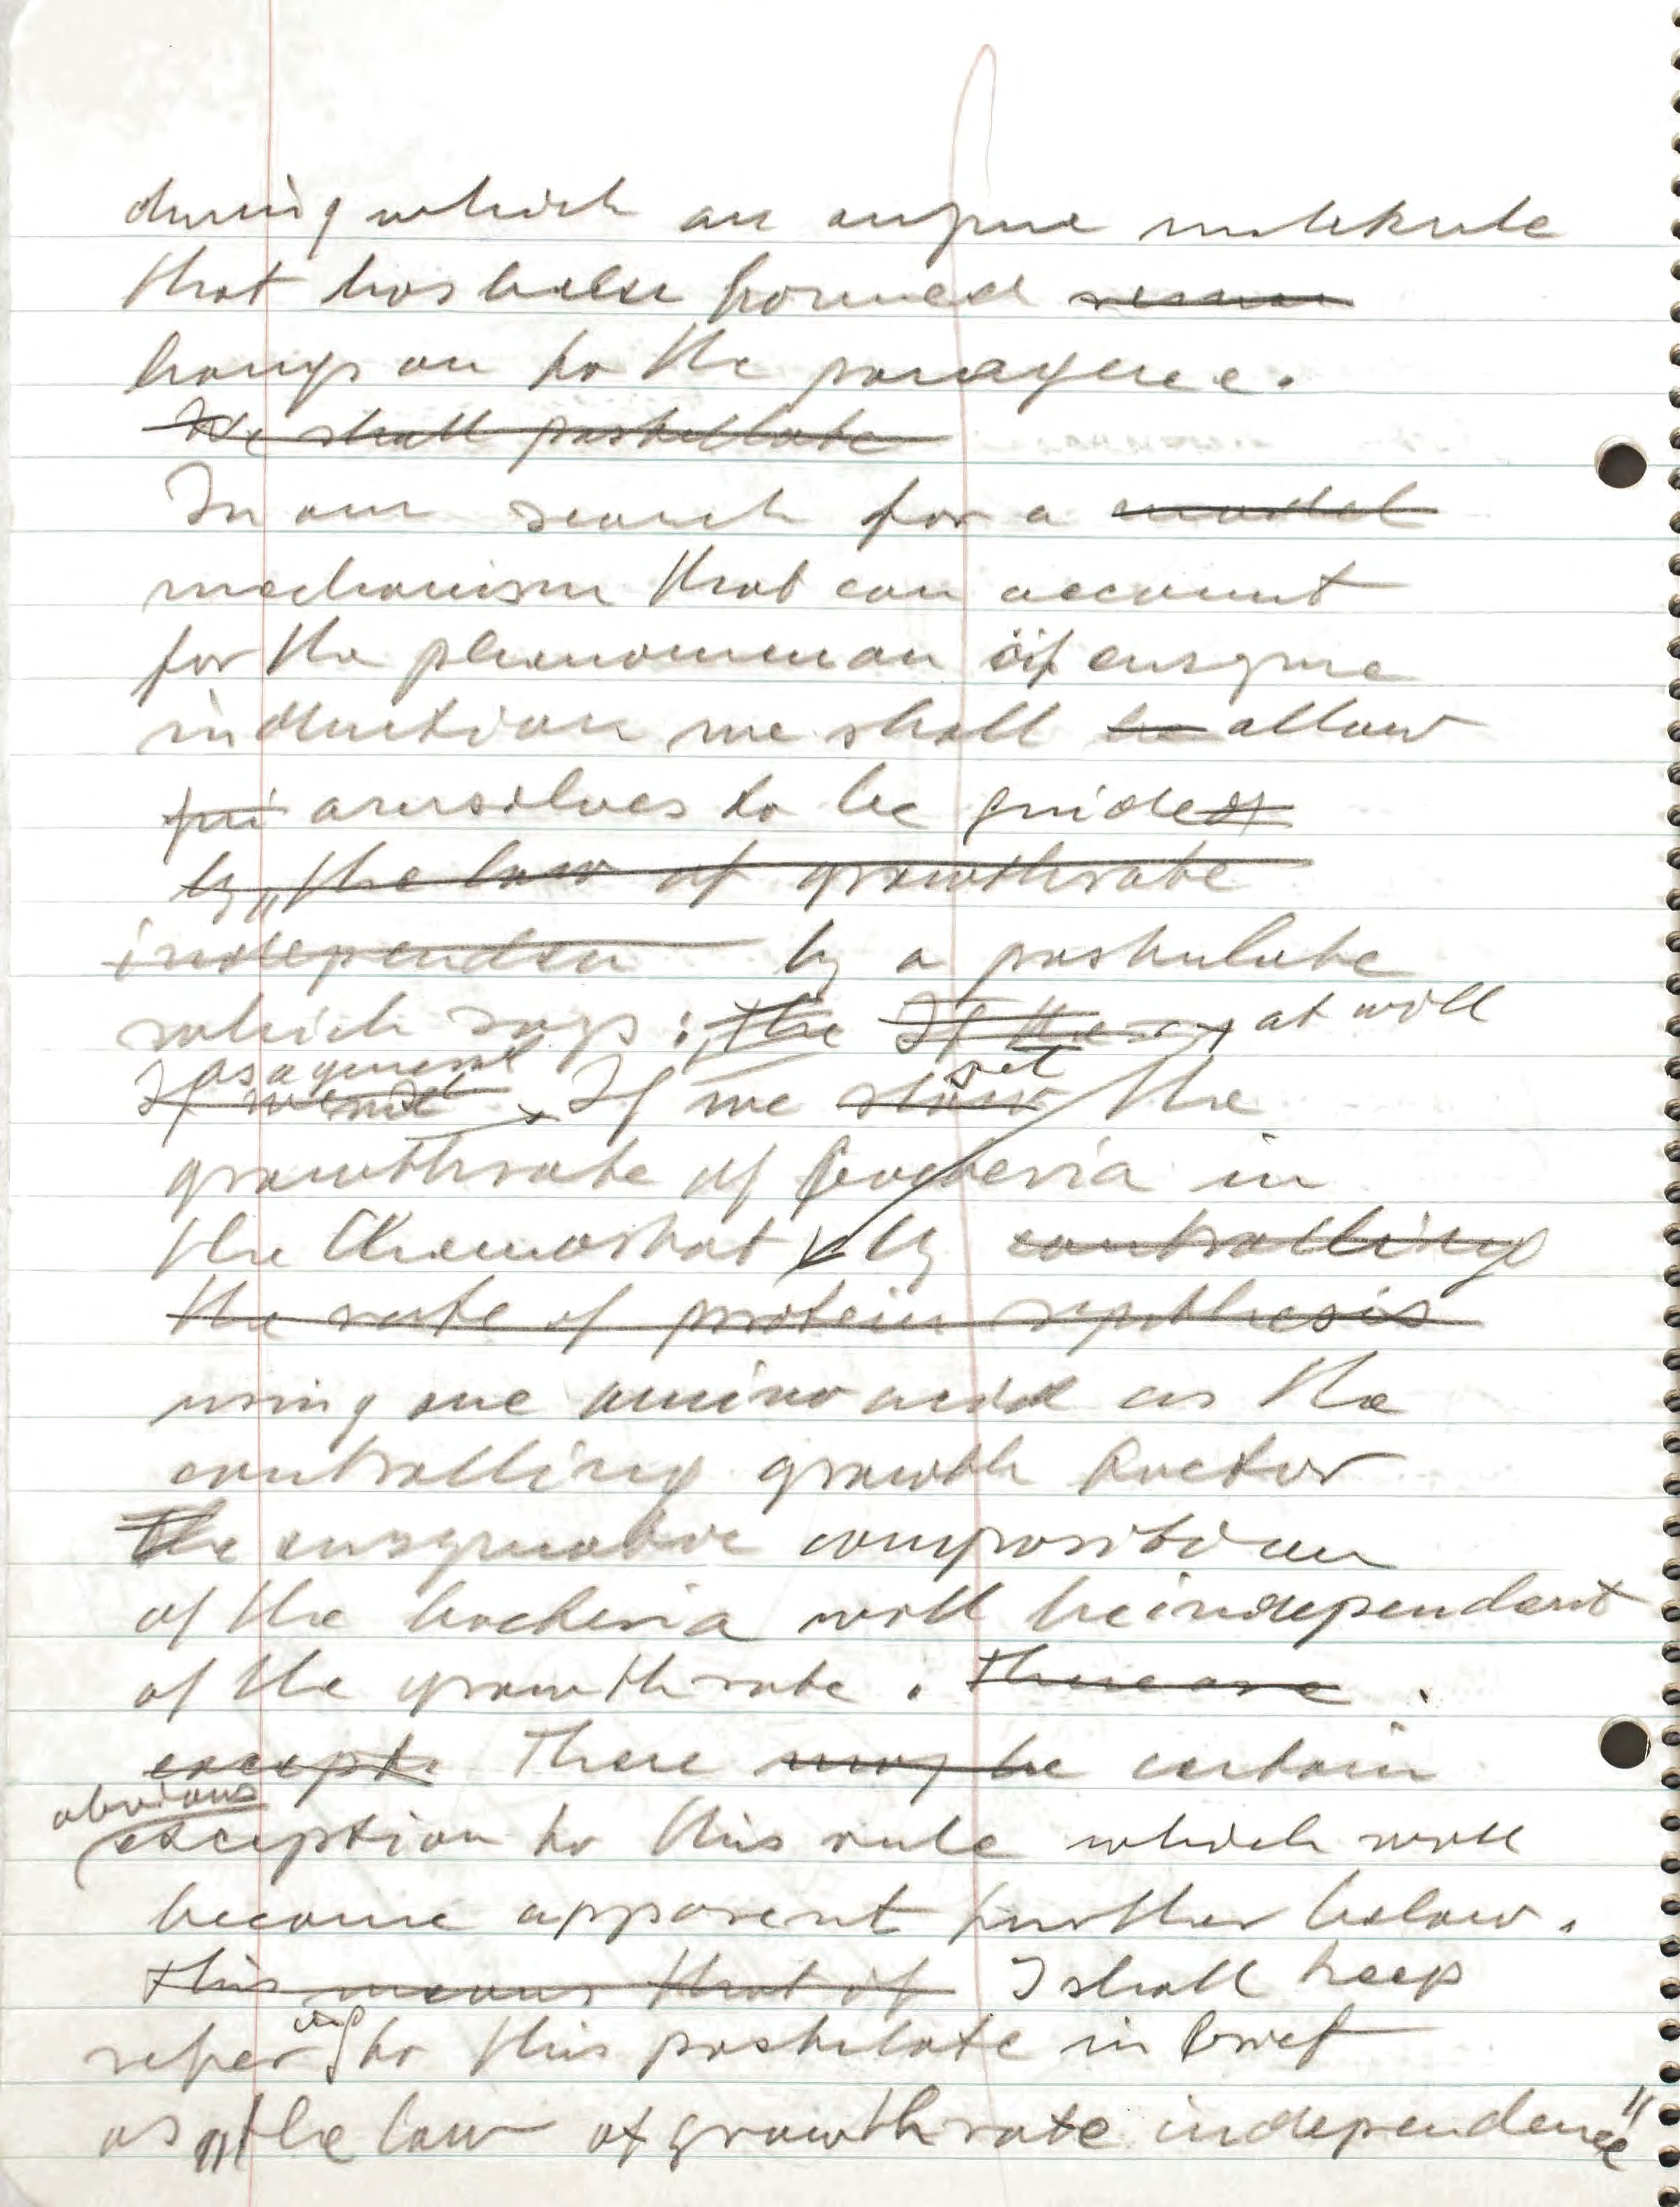 during which an enzyme molekule
that has been formed
hangs on to the paragene.
We shall postullate
In our search for a model
mechanism that can account
for the phenomenon of enzyme
induction we shall be allow
oursolves to be guided
by „the law of growthrate
independen by a postulate
which says: „the If the at will
as a general
set
If we If we slow the
growthrate of bacteria in
the Chemostat by controlling
the rate of protein synthesis
using one amino acid as the
controlling growth factor
The enzymatic composition
of the bacteria will be independent
of the growth rate. There are .
except There may be certain
obvious
exception to this rule which will
become apparent further below.
this means that if I shall keep
ing
refer to this postulate in brief
as „the law of growth rate independence"